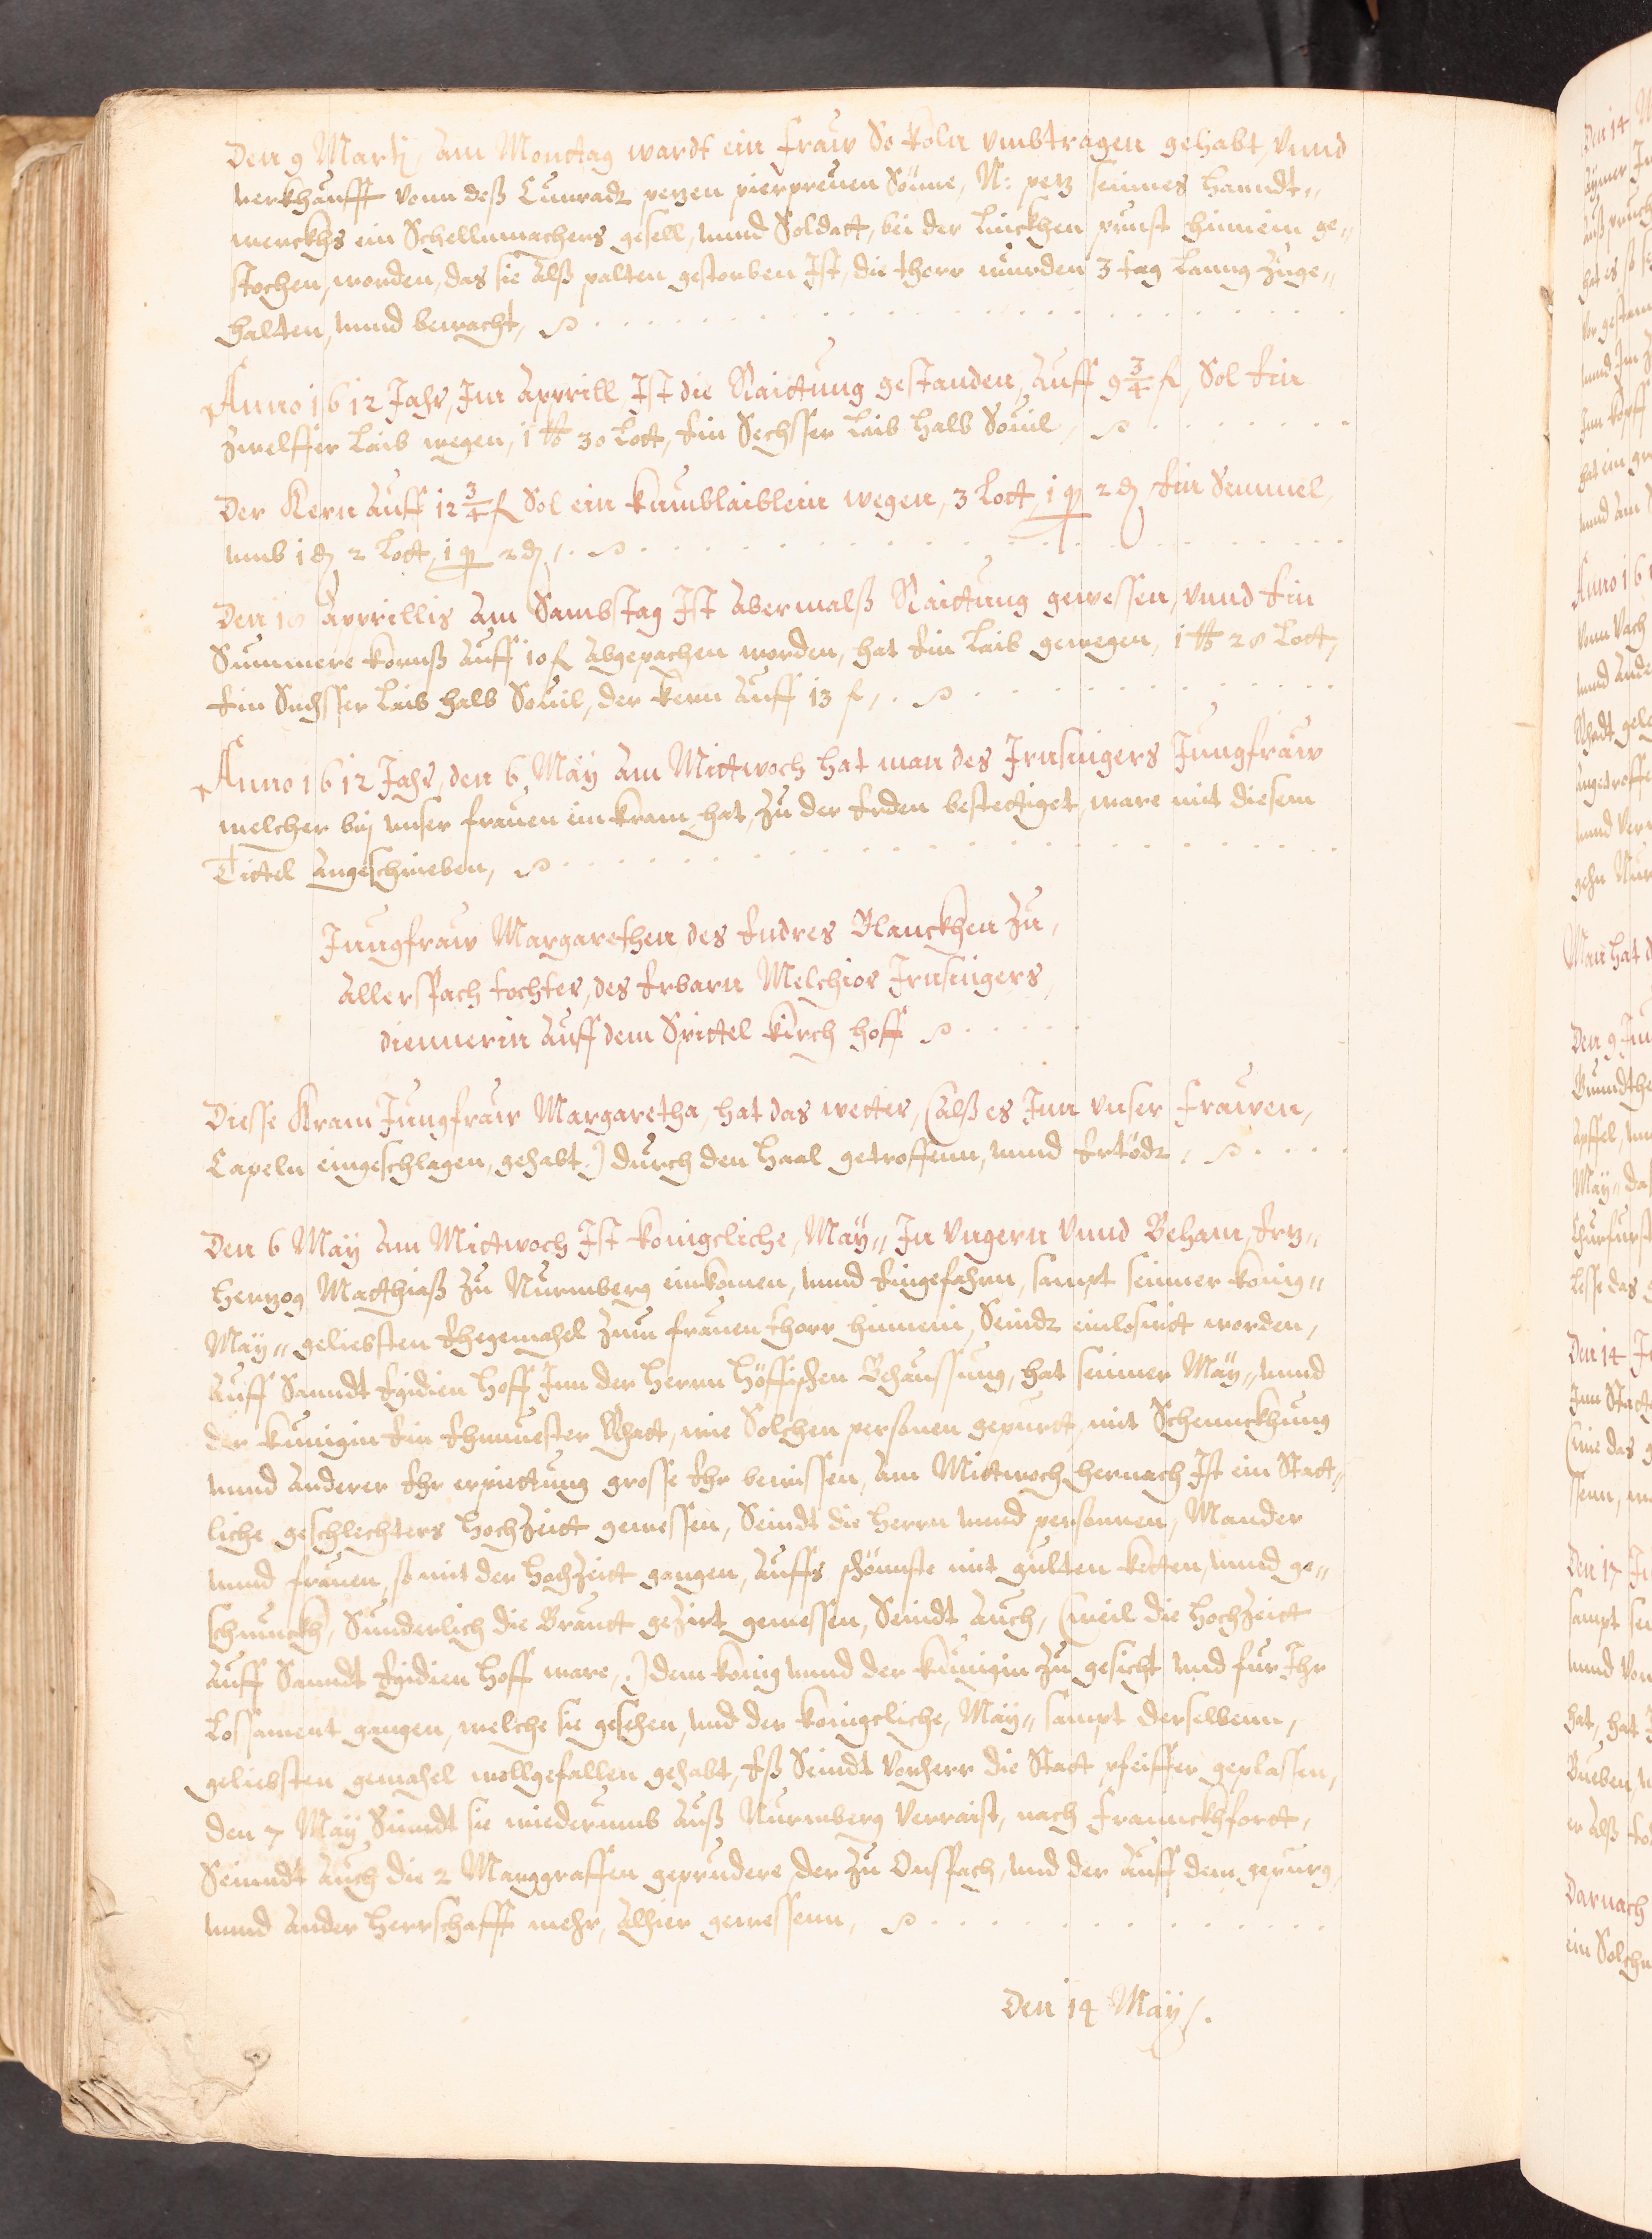 Den 9 Martj, am Monttag wardt ein fraw So koln vmbtragen gehabt, vnnd
verkhaufft vonn deß Cunradt petzen pierpreuen Sönne, N: petz seinnes Hanndt„
werckhs ein Schellnmachers gesell, vnnd Soldatt, bei der linckhen prust hinnein ge„
stochen, worden, das sie alß palten gestorben Ist, die thorr wurden 3 tag lanng zuge„
halten, vnnd bewacht,
Anno 1612 Jahr, Im Apprill Ist die Raittung gestanden, auff 9 3/4 fl, Sol Ein
zwelffer laib wegen, 1 ℔ 30 lott, Ein Sechsser laib halb Souil,
Der Kern auff 12 3/4 fl Sol ein kumblaiblein wegen, 3 lott, 1 q 2 ₰ Ein Semmel,
vmb 1 ₰ 2 lott, 1 q 2 ₰,
Den 18 Apprillis am Sambstag Ist abermalß Raittung gewessen, vnnd Ein
Summere kornß auff 10 fl abgepachen worden, hat Ein laib gewegen, 1 ℔ 28 lott,
Ein Sechsser laib halb Souil, der kern auff 13 fl,
Anno 1612 Jahr, den 6 May am Mittwoch hat man des Irnsingers Jungfraw
welcher bey vnser frauen ein kram hat, zu der Erden bestettiget, ware mit diesem
Tittel angeschrieben,
Jungfraw Margarethen, des Endres Blanckhen zu,
allersspach tochter, des Erbarn Melchior Irnsingers,
diennerin auff dem Spittel kirch hoff
Diesse Kram Jungfraw Margaretha, hat das wetter, (alß es Inn vnser frawen,
Capeln eingeschlagen, gehabt.) durch den Haal getroffenn, vnnd Ertödt,
Den 6 May am Mittwoch Ist königcliche, May„ In Vngern vnnd Beham, Ertz„
Hertzog Matthiaß zu Nurmberg einkomen, vnnd Eingefahrn, sampt seinner könig„
May„ geliebsten Ehegemahel zum frauen thorr hinnein, Seindt einlosirtt worden,
auff Sanndt Egidien Hoff Inn der Herrn Höffischen Behaussung, hat seinner May„ vnnd
der künigin Ein Ehrnuester Rhatt, wie Solchen personen gepurtt, mit Schennckhung
vnnd anderer Ehr erpiettung grosse Ehr bewissen, am Mittwoch hernach Ist ein Statt„
liche geschlechters Hochzeitt gewessen, Seindt die Herrn vnnd personnen, Mander
vnnd frauen, so mit der Hochzeitt gangen, auffs schönnste mit gulten ketten, vnnd ge„
schmuckh, Sunderlich die Brautt gezirt gewessen, Seindt auch, (weil die Hochzeitt
auff Sanndt Egidien Hoff ware,.) dem könig vnnd der künigin zu gesicht vnd fur Ihr
Lossament gangen, welche sie gesehen, vnd der königcliche, May„ sampt derselbenn,
geliebsten gemahel wollgefallen gehabt, Eß Seindt vorherr die Statt pfeiffer geplassen,
den 7 May Seindt sie wiederumb auß Nurmberg verraist, nach Franckhfortt,
Seinndt auch die 2 Marggraffen geprudere der zu Onspach, vnd der auff dem gepurg,
vnnd ander Herrschafft mehr, alhier gewessenn,
Den 14 May,.